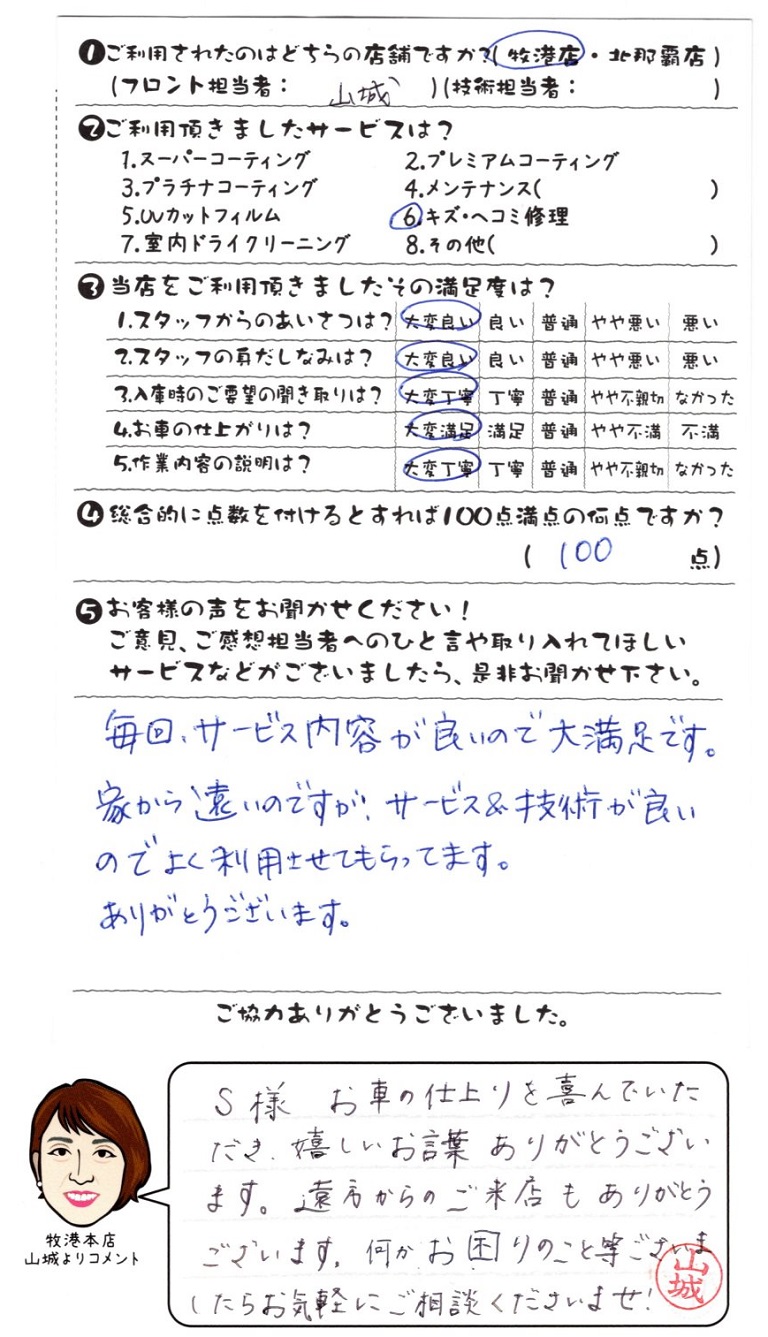 ❶ご利用されたのはどちらの店舗ですか?(牧港店・北那覇店)
(フロント担当者: 山城 )(技術担当者: )
❷ご利用頂きましたサービスは?
1.スーパーコーティング 2.プレミアムコーティング
3.プラチナコーティング 4.メンテナンス( )
5.UVカットフィルム 6.キズ・ヘコミ修理
7.室内ドライクリーニング 8.その他( )
❸当店をご利用頂きましたその満足度は?
1.スタッフからのあいさつは? 大変良い 良い 普通 やや悪い 悪い
2.スタッフの身だしなみは? 大変良い 良い 普通 やや悪い 悪い
3.入庫時のご要望の聞き取りは? 大変丁寧 丁寧 普通 やや不親切 なかった
4.お車の仕上がりは? 大変満足 満足 普通 やや不満 不満
5.作業内容の説明は? 大変丁寧 丁寧 普通 やや不親切 なかった
❹総合的に点数を付けるとすれば100点満点の何点ですか?
( 100 点)
❺お客様の声をお聞かせください!
ご意見、ご感想担当者へのひと言や取り入れてほしい
サービスなどがございましたら、是非お聞かせ下さい。
毎回、サービス内容が良いので大満足です。
家から遠いのですが、サービス&技術が良い
のでよく利用させてもらってます。
ありがとうございます。
ご協力ありがとうございました。
S様 お車の仕上りを喜んでいた
だき、嬉しいお言葉ありがとうござい
ます。遠方からのご来店もありがとう
ございます。何かお困りのこと等ございま
したらお気軽にご相談くださいませ!
山城
牧港本店
山城よりコメント